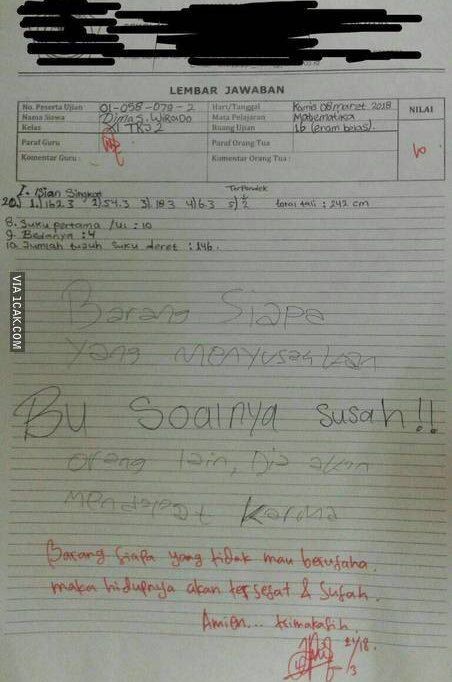 LEMBAR JAWABAN
No. Peserta Ujian 01-058-079-2 Hari/Tanggal Kamis 08 maret 2018 NILAI
Nama Siswa Dimas. Wiraldo Mata Pelajaran Matematika
Kelas XI TKJ 2 Ruang Ujian 16 (enam belas).
Paraf Guru Paraf Orang Tua
Komentar Guru : Komentar Orang Tua :
I. Isian Singkat
Terpendek
20.) 1.) 162.3 2) 54.3 3) 18.3 4) 6.3 5) total tali : 242 cm
8. Suku pertama /U1 : 10
9. Bedanya : 4
10. Jumlah tujuh suku deret : 146.
Barang Siapa
yang menyusahkan
Bu Soalnya susah!!
orang lain, Dia akan
mendapat Karma
Barang siapa yang tidak mau berusaha.
maka hidupnya akan tersesat & Susah.
Amien... trimakasih
VIA 1CAK.COM